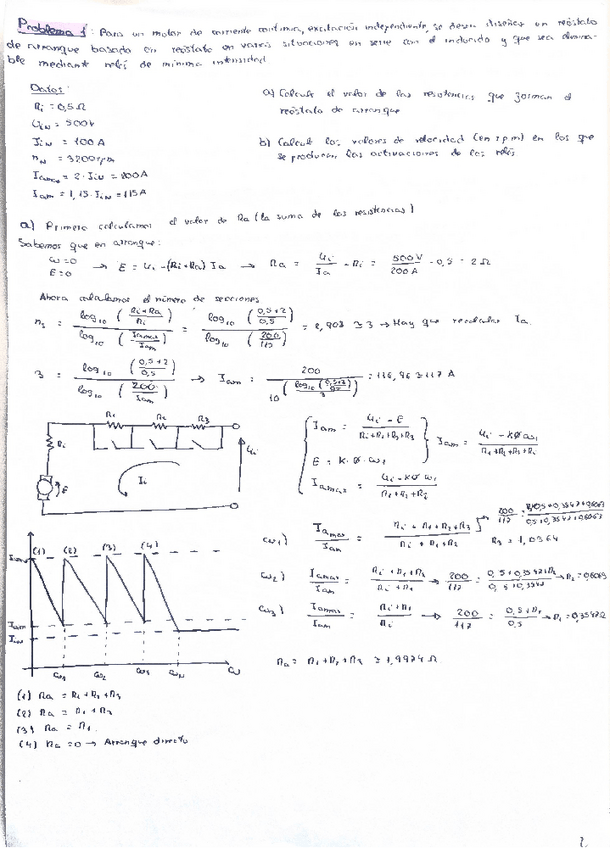 Problema 1: Para un motor de corriente continua, excitación independiente, se desea diseñar un reóstato
de arranque basado en reóstato en varias situaciones en serie con el inducido y que sea elimina-
ble mediante relés de mínima intensidad.
Datos:
Ri = 0,5 Ω
UiN = 500 V
IiN = 100 A
nN = 3200 rpm
Iamax = 2 · IiN = 200 A
Iam = 1,15 · IiN = 115 A
a) Calcule el valor de las resistencias que forman el
reóstato de arranque
b) Calcule los valores de velocidad (en rpm) en los que
se producen las activaciones de los relés
a) Primero calculamos el valor de Ra (la suma de las resistencias)
Sabemos que en arranque:
ω = 0
E = 0 → E = Ui - (Ri + Ra) Ia → Ra = Ui / Ia - Ri = 500 V / 200 A - 0,5 = 2 Ω
Ahora calculamos el número de secciones
= log10 ((Ri + Ra) / Ri) / log10 (Iamax / Iam) = log10 ((0,5 + 2) / 0,5) / log10 (200 / 115) = 2,908 ≅ 3 → Hay que recalcular Ia
3 = log10 ((0,5 + 2) / 0,5) / log10 (200 / Iam) → Iam = 200 / 10^(log10((0,5+2)/0,5) / 3) = 116,96 ≅ 117 A
R1 R2 R3
Ri
E
Ii
Ui
Iam = (Ui - E) / (Ri + R1 + R2 + R3)
E = K · Ø · ω1
Iam = (Ui - KØω1) / (R1 + R2 + R3 + Ri)
Iamax = (Ui - KØω1) / (R1 + R2 + Ri)
ω1) Iamax / Iam = (Ri + R1 + R2 + R3) / (Ri + R1 + R2)
R3 = 1,0364
ω2) Iamax / Iam = (Ri + R1 + R2) / (Ri + R1) → 200 / 117 = (0,5 + 0,3547 + R2) / (0,5 + 0,3547) → R2 =
ω3) Iamax / Iam = (Ri + R1) / Ri → 200 / 117 = (0,5 + R1) / 0,5 → R1 = 0,3547 Ω
Ra = R1 + R2 + R3 ≅ 1,9974 Ω
Iamax (1) (2) (3) (4)
Iam
IiN
ω1 ω2 ω3 ωN ω
(1) Ra = R1 + R2 + R3
(2) Ra = R1 + R2
(3) Ra = R1
(4) Ra = 0 → Arranque directo